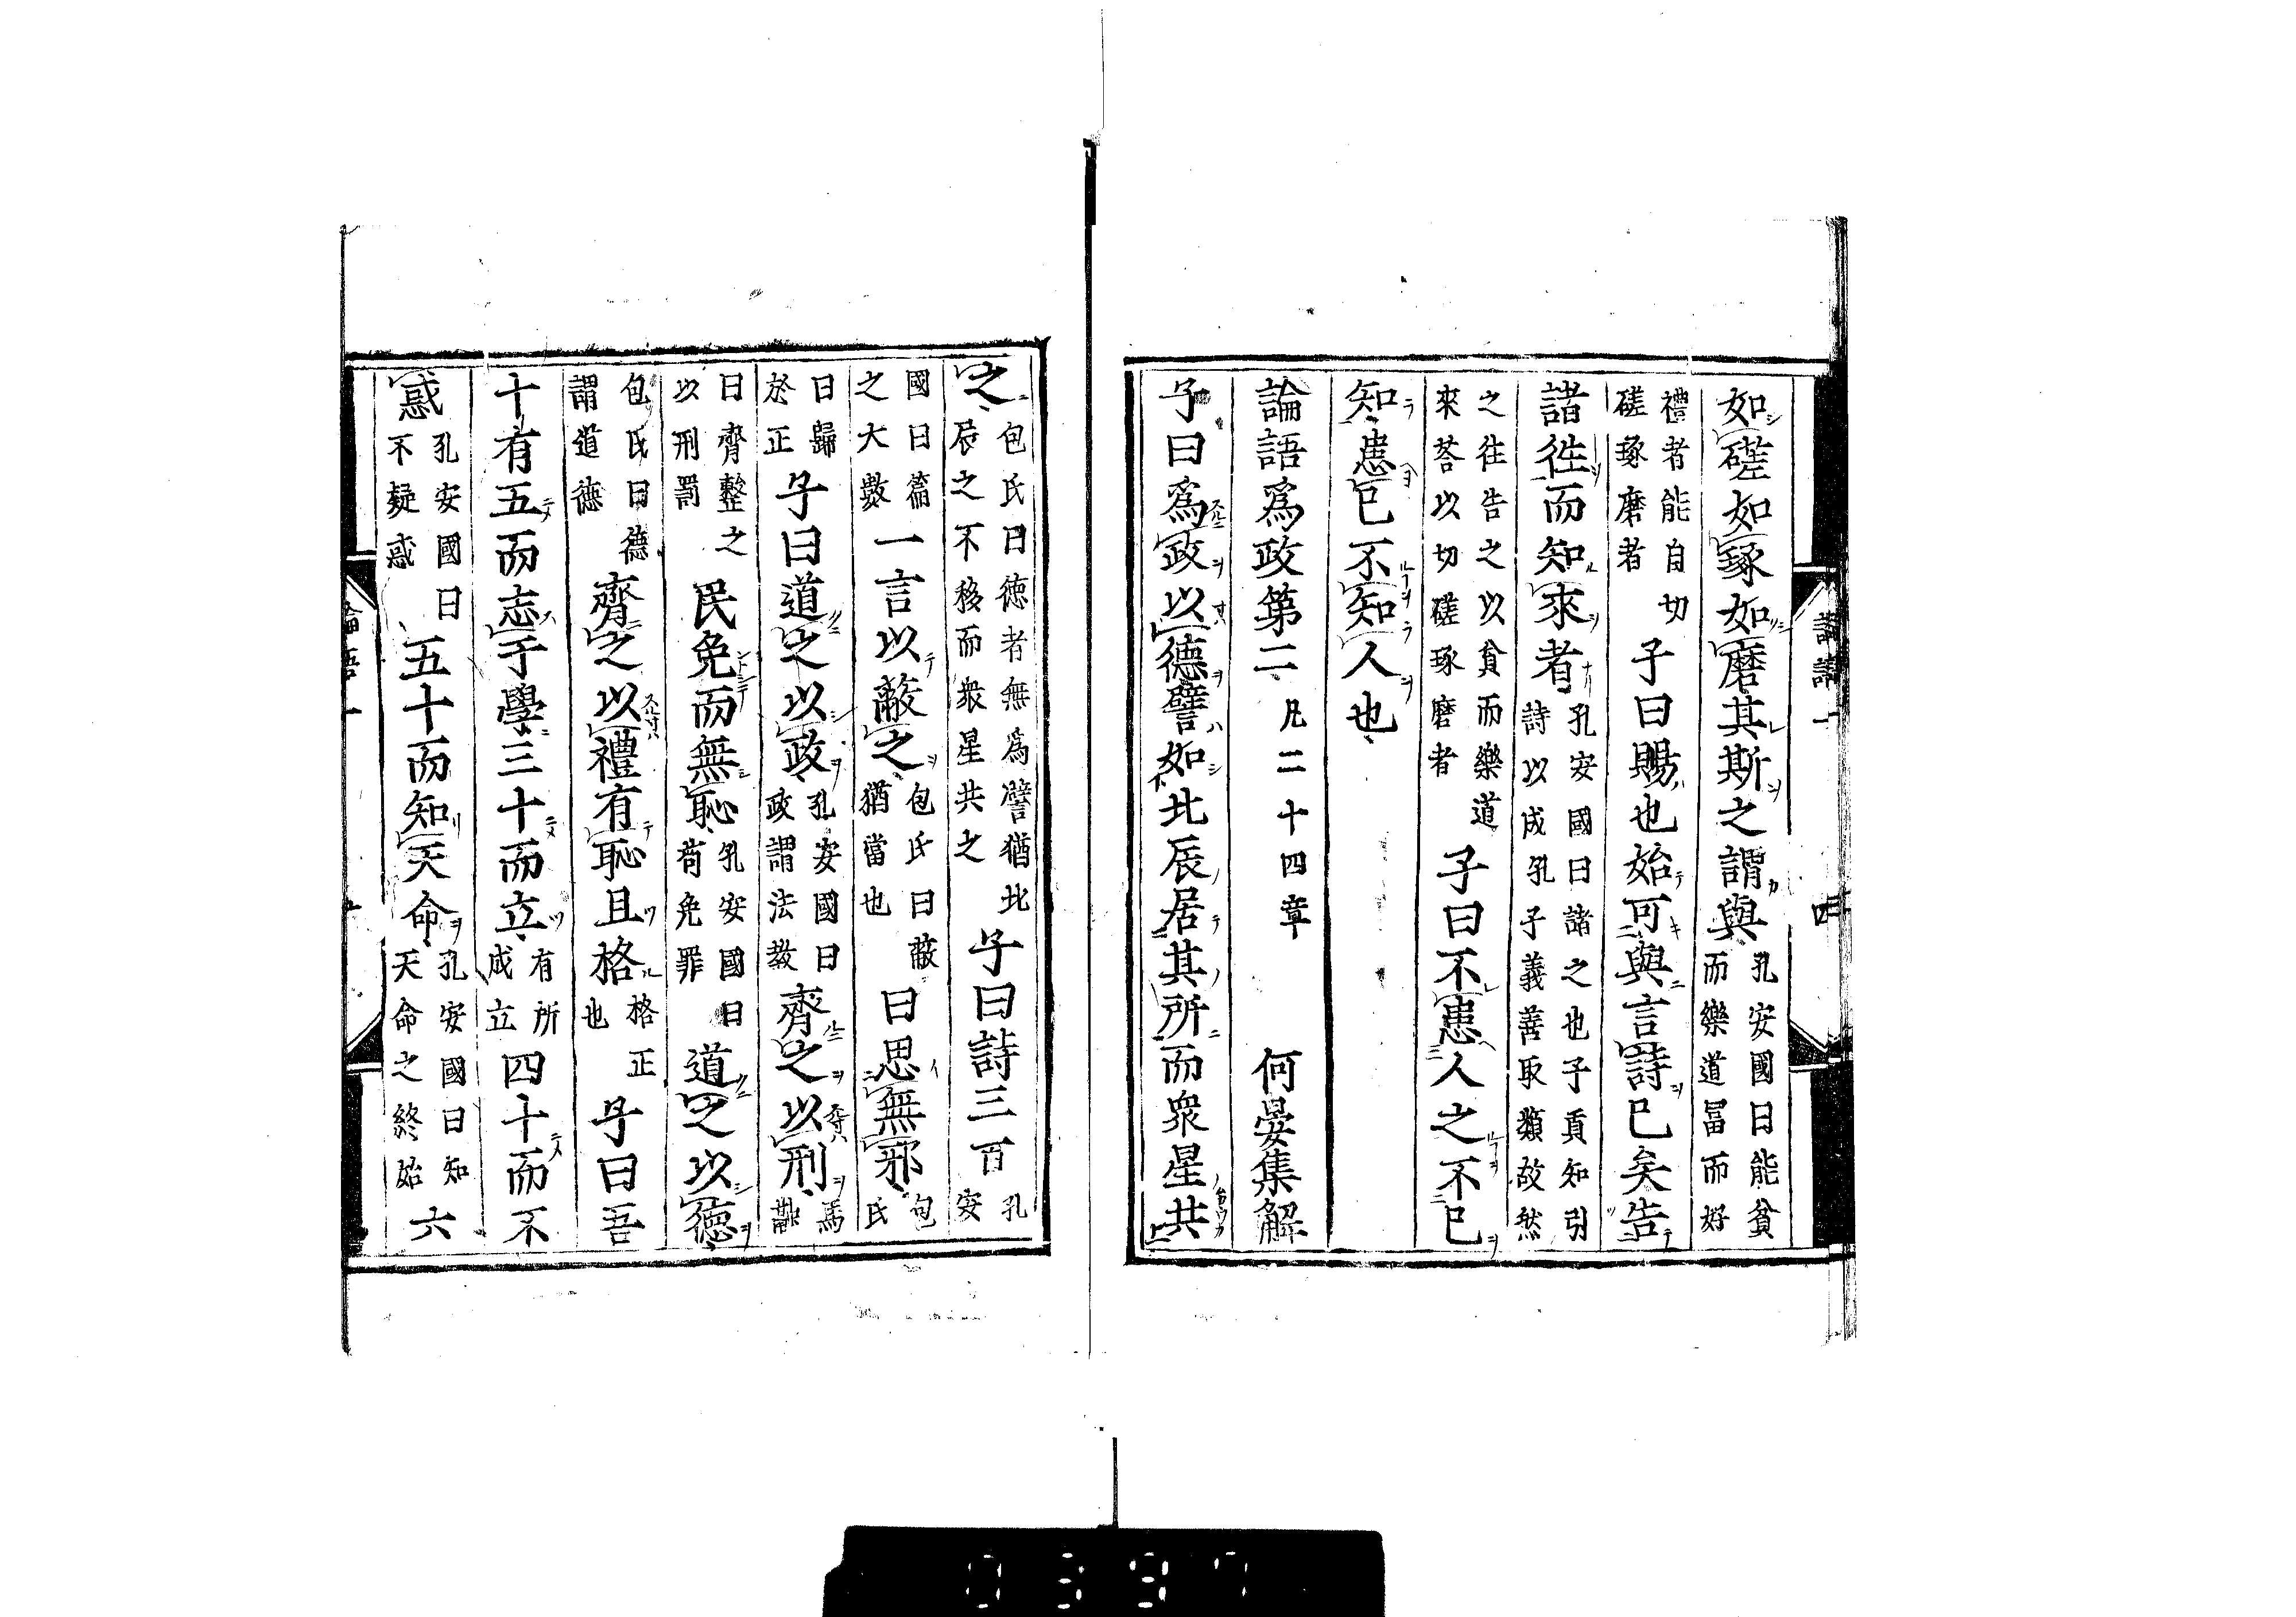 如磋如琢如磨其斯之謂與孔安國曰能貧而樂道冨而好
禮者能自切磋琢磨者子曰賜也始可與言詩已矣告
諸徃而知來者孔安國曰諸之也子貢知引詩以成孔子義善取類故然
之徃告之以貧而樂道來荅以切磋琢磨者子曰不患人之不已
知患已不知人也
論語爲政第二凡二十四章何晏集解
子曰爲政以德譬如北辰居其所而衆星共
之包氏曰德者無爲譬猶北辰之不移而衆星共之子曰詩三百孔安
國曰篇之大數一言以蔽之包氏曰蔽猶當也曰思無邪包氏
曰歸於正子曰道之以政孔安國曰政謂法教齊之以刑馬融
曰齊整之以刑罰民免而無恥孔安國曰苟免罪道之以德
包氏曰德謂道德齊之以禮有恥且格格正也子曰吾
十有五而志于學三十而立有所成立四十而不
惑孔安國曰不疑惑五十而知天命孔安國曰知天命之終始六
論語一
四